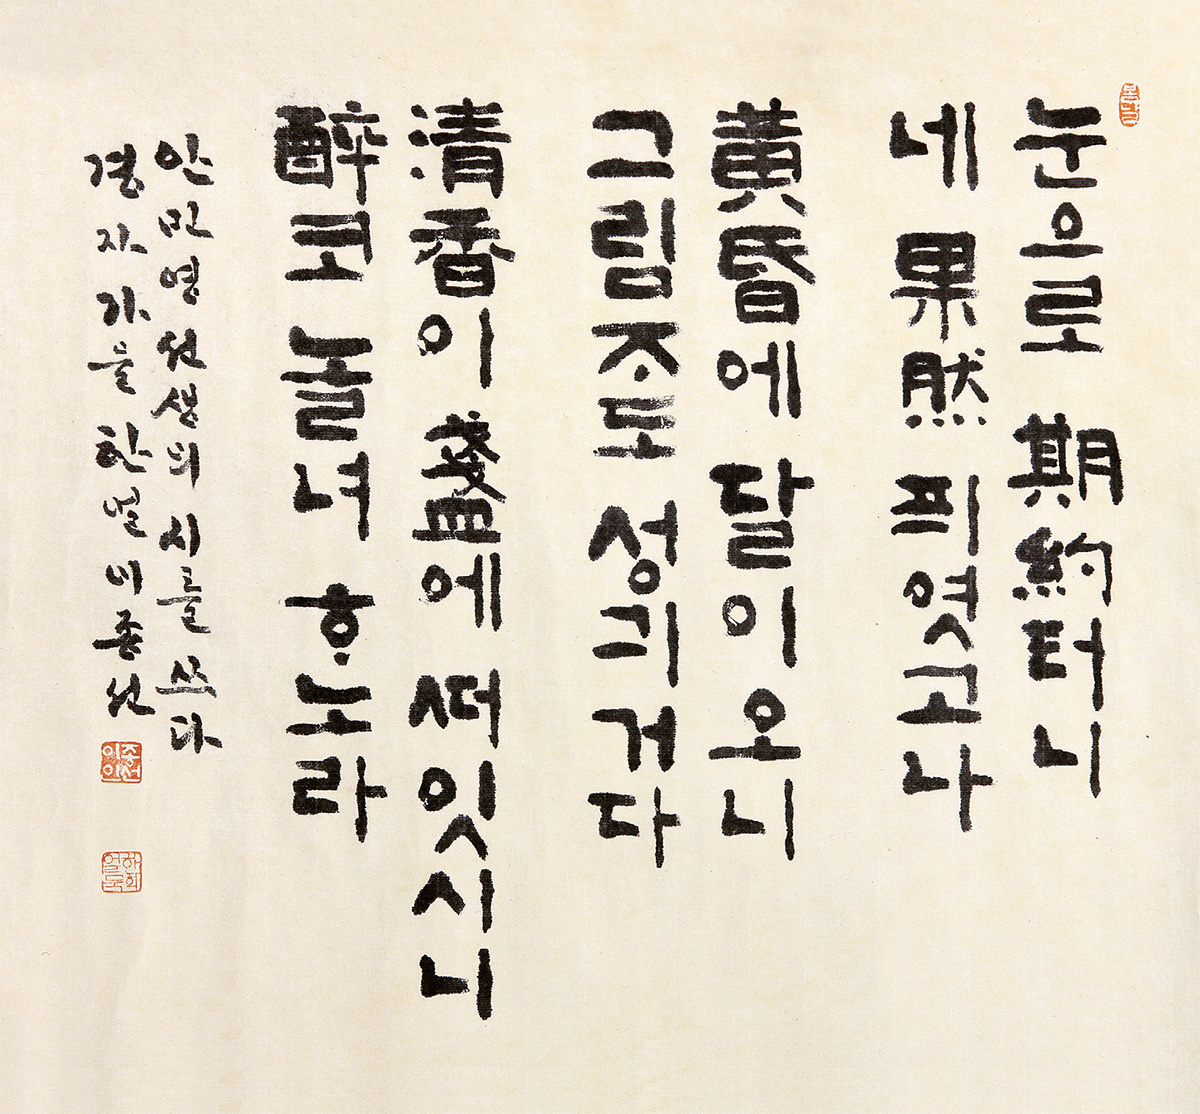 눈으로 期約터니
네 果然 픠엿고나
黃昏에 달이 오니
그림ᄌᆞ도 성긔거다
清香이 盞에 ᄯᅥ잇시니
醉코 놀녀 ᄒᆞ노라
안민영선생의 시를 쓰다
경자가을 한얼 이종선